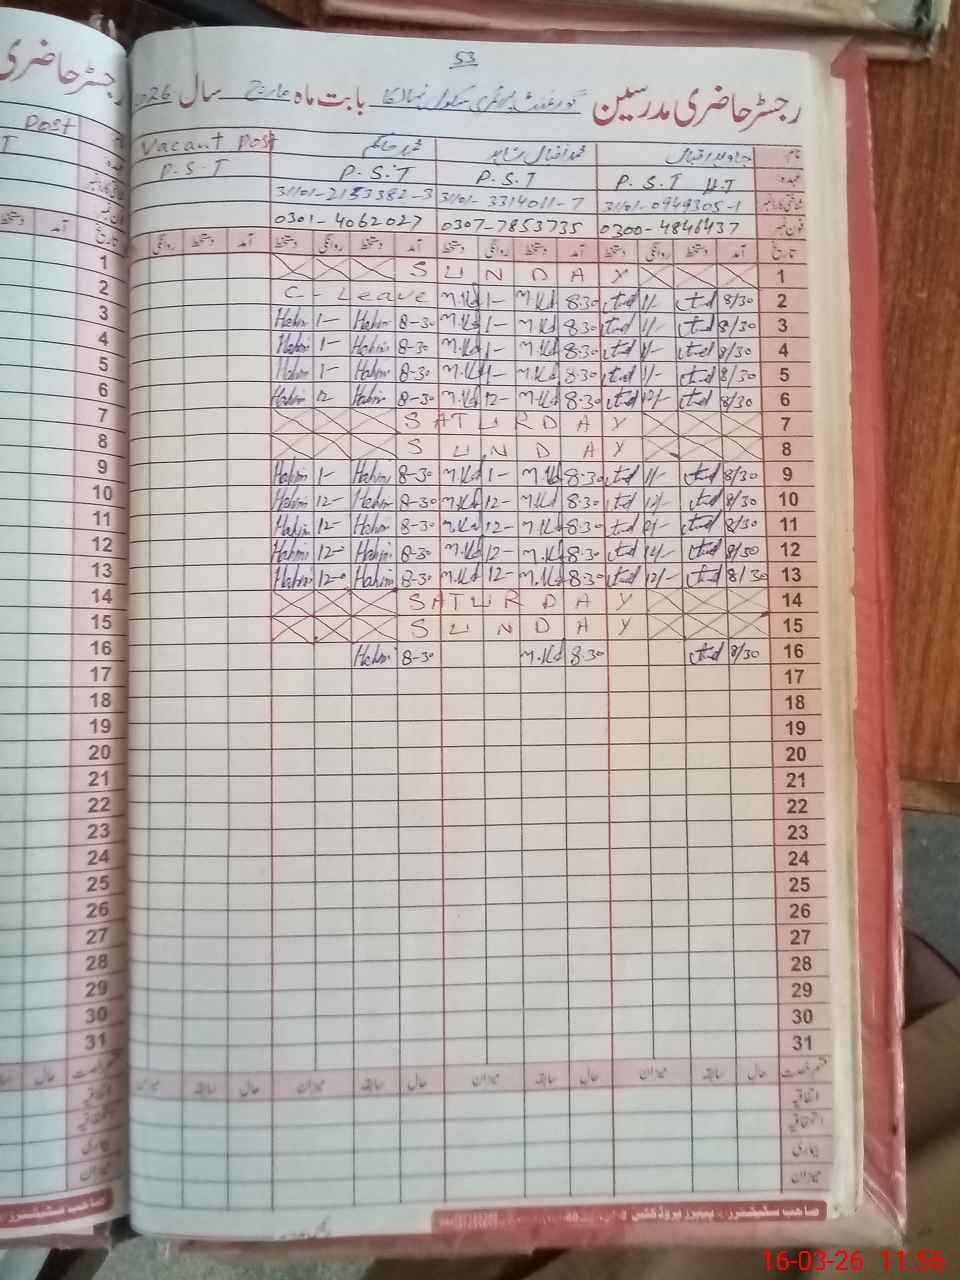 53
رجسٹر حاضری مدرسین گورنمنٹ پرائمری سکول بابت ماہ مارچ سال 2026
نام جاوید اقبال محمد اقبال شاہد محمد حاکم Vacant Post
عہدہ P.S.T H.T P.S.T P.S.T P.S.T
31101-0949305-1 31101-3314011-7 31101-2153382-3
فون نمبر 0300-4846437 0307-7853735 0301-4062027
تاریخ آمد دستخط روانگی دستخط آمد دستخط روانگی دستخط آمد دستخط روانگی دستخط آمد دستخط روانگی
1 SUNDAY
2 8/30 1/- 8.30 M.Kd 1- M.Kd C-Leave
3 8/30 1/- 8.30 M.Kd 1- M.Kd 8-30 Hakim 1- Hakim
4 8/30 1/- 8.30 M.Kd 1- M.Kd 8-30 Hakim 1- Hakim
5 8/30 1/- 8.30 M.Kd 1- M.Kd 8-30 Hakim 1- Hakim
6 8/30 12/- 8.30 M.Kd 12- M.Kd 8-30 Hakim 12 Hakim
7 SATURDAY
8 SUNDAY
9 8/30 1/- 8.30 M.Kd 1- M.Kd 8-30 Hakim 1- Hakim
10 8/30 12/- 8.30 M.Kd 12- M.Kd 8-30 Hakim 12- Hakim
11 8/30 12/- 8.30 M.Kd 12- M.Kd 8-30 Hakim 12- Hakim
12 8/30 12/- 8.30 M.Kd 12- M.Kd 8-30 Hakim 12- Hakim
13 8/30 12/- 8.30 M.Kd 12- M.Kd 8-30 Hakim 12- Hakim
14 SATURDAY
15 SUNDAY
16 8/30 8.30 M.Kd 8-30 Hakim
17
18
19
20
21
22
23
24
25
26
27
28
29
30
31
قسم رخصت حال سابقہ میزان حال سابقہ میزان حال سابقہ میزان حال سابقہ میزان
اتفاقیہ
بیماری
میزان
صاحب سٹیشنرز - پیپر پروڈکٹس
رجسٹر حاضری
Post
T
آمد دستخط
1
2
3
4
5
6
7
8
9
10
11
12
13
14
15
16
17
18
19
20
21
22
23
24
25
26
27
28
29
30
31
قسم رخصت حال
اتفاقیہ
بیماری
میزان
صاحب سٹیشنرز
16-03-26 11:56